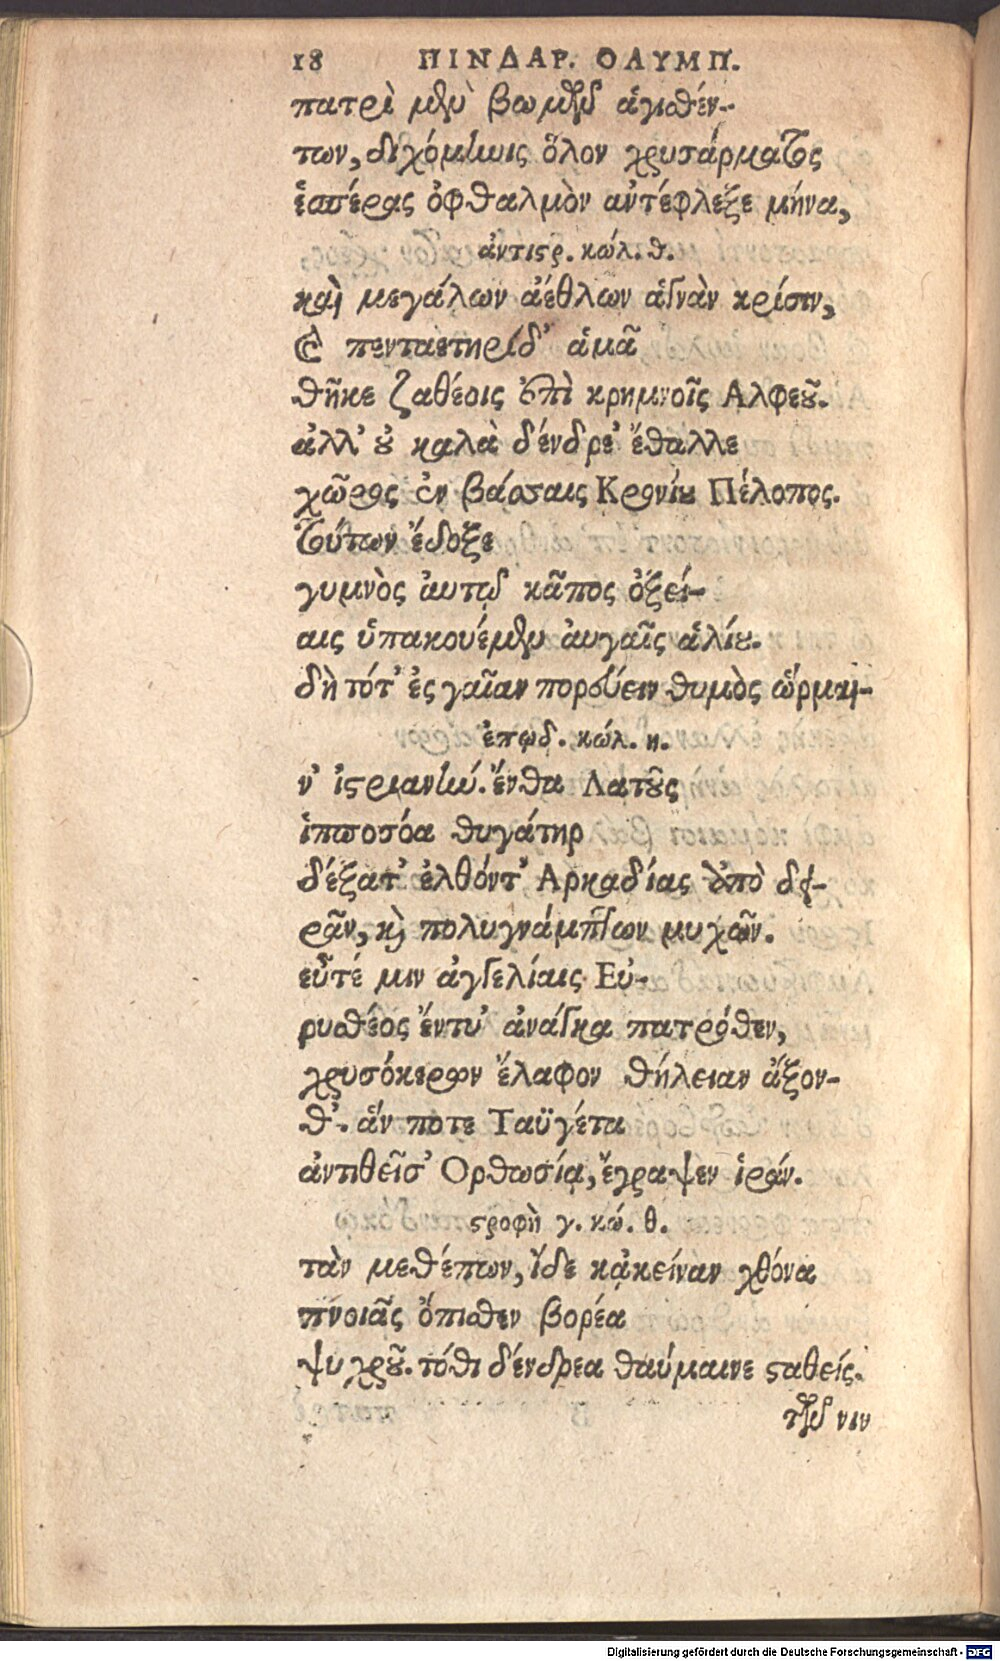 18 ΠΙΝΔΑΡ. ΟΛΥΜΠ.
πατρὶ μὲν βωμῶν ἁγισθέν-
των, διχόμηνις ὅλον χρυσάρματος
ἑσπέρας ὀφθαλμὸν ἀντέφλεξε μήνα,
ἀντιστρ. κώλ. θ.
καὶ μεγάλων ἀέθλων ἁγνὰν κρίσιν,
καὶ πενταετηρίδ' ἁμᾶ
θῆκε ζαθέοις ἐπὶ κρημνοῖς Αλφεοῦ.
ἀλλ' οὐ καλὰ δένδρε' ἔθαλλε
χῶρος ἐν βάσσαις Κρονίου Πέλοπος.
τούτων ἔδοξε
γυμνὸς ἀυτῷ κᾶπος ὀξεί-
αις ὑπακουέμεν ἀυγαῖς ἁλίου.
δὴ τότ' ἐς γαῖαν πορεύειν θυμὸς ὥρμαι-
ἐπῳδ. κώλ. η.
ν' ἰστριανὴν. ἔνθα Λατοῦς
ἱπποσόα θυγάτηρ
δέξατ' ἐλθόντ' Αρκαδίας ἀπὸ δει-
ρᾶν, καὶ πολυγνάμπτων μυχῶν.
εὖτέ μιν ἀγγελίαις Εὐ-
ρυσθέος ἔντυ' ἀνάγκα πατρόθεν,
χρυσόκερων ἔλαφον θήλειαν ἄξον-
θ'. ἅν ποτε Ταϋγέτα
ἀντιθεῖσ' Ορθωσίᾳ, ἔγραψεν ἱράν.
στροφὴ γ. κώ. θ.
τὰν μεθέπων, ἴδε κἀκείναν χθόνα
πνοιᾶς ὄπισθεν βορέα
ψυχροῦ. τόθι δένδρεα θαύμαινε σταθείς.
τῶν νιν
Digitalisierung gefördert durch die Deutsche Forschungsgemeinschaft - DFG